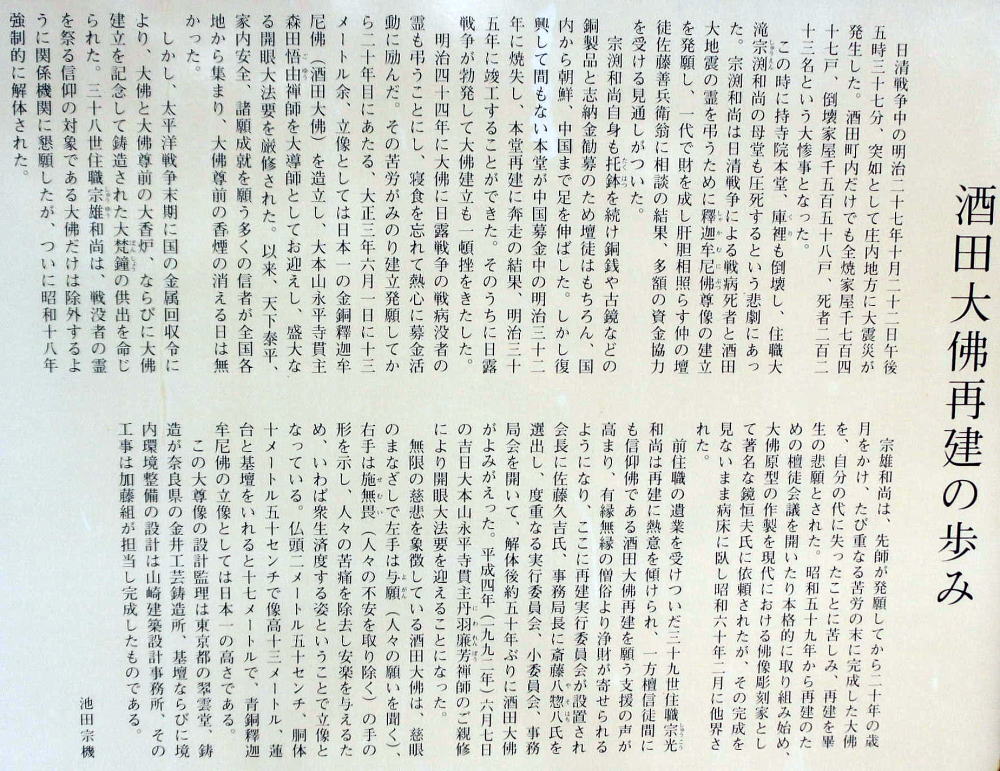 酒田大佛再建の歩み
日清戦争中の明治二十七年十月二十二日午後
五時三十七分、突如として庄内地方に大震災が
発生した。酒田町内だけでも全焼家屋千七百四
十七戸、倒壊家屋千五百五十八戸、死者二百二
十三名という大惨事となった。
この時に持寺院本堂、庫裡も倒壊し、住職大
滝宗渕和尚の母堂も圧死するという悲劇にあっ
た。宗渕和尚は日清戦争による戦病死者と酒田
大地震の霊を弔うために釋迦牟尼佛尊像の建立
を発願し、一代で財を成し肝胆相照らす仲の壇
徒佐藤善兵衛翁に相談の結果、多額の資金協力
を受ける見通しがついた。
宗渕和尚自身も托鉢を続け銅銭や古鏡などの
銅製品と志納金勧募のため壇徒はもちろん、国
内から朝鮮、中国まで足を伸ばした。しかし復
興して間もない本堂が中国募金中の明治三十二
年に焼失し、本堂再建に奔走の結果、明治三十
五年に竣工することができた。そのうちに日露
戦争が勃発して大佛建立も一頓挫をきたした。
明治四十四年に大佛に日露戦争の戦病没者の
霊も弔うことにし、寝食を忘れて熱心に募金活
動に励んだ。その苦労がみのり建立発願してか
ら二十年目にあたる、大正三年六月一日に十三
メートル余、立像としては日本一の金銅釋迦牟
尼佛（酒田大佛）を造立し、大本山永平寺貫主
森田悟由禅師を大導師としてお迎えし、盛大な
る開眼大法要を厳修された。以来、天下泰平、
家内安全、諸願成就を願う多くの信者が全国各
地から集まり、大佛尊前の香煙の消える日は無
かった。
しかし、太平洋戦争末期に国の金属回収令に
より、大佛と大佛尊前の大香炉、ならびに大佛
建立を記念して鋳造された大梵鐘の供出を命じ
られた。三十八世住職宗雄和尚は、戦没者の霊
を祭る信仰の対象である大佛だけは除外するよ
うに関係機関に懇願したが、ついに昭和十八年
強制的に解体された。
宗雄和尚は、先師が発願してから二十年の歳
月をかけ、たび重なる苦労の末に完成した大佛
を、自分の代に失ったことに苦しみ、再建を畢
生の悲願とされた。昭和五十九年から再建のた
めの檀徒会議を開いたり本格的に取り組み始め、
大佛原型の作製を現代における佛像彫刻家とし
て著名な鏡恒夫氏に依頼されたが、その完成を
見ないまま病床に臥し昭和六十年二月に他界さ
れた。
前住職の遺業を受けついだ三十九世住職宗光
和尚は再建に熱意を傾けられ、一方檀信徒間に
も信仰佛である酒田大佛再建を願う支援の声が
高まり、有縁無縁の僧俗より浄財が寄せられる
ようになり、ここに再建実行委員会が設置され
会長に佐藤久吉氏、事務局長に斎藤八惣八氏を
選出し、度重なる実行委員会、小委員会、事務
局会を開いて、解体後約五十年ぶりに酒田大佛
がよみがえった。平成四年（一九九二年）六月七日
の吉日大本山永平寺貫主丹羽廉芳禅師のご親修
により開眼大法要を迎えることになった。
無限の慈悲を象徴している酒田大佛は、慈眼
のまなざしで左手は与願（人々の願いを聞く）、
右手は施無畏（人々の不安を取り除く）の手の
形を示し、人々の苦痛を除去し安楽を与えるた
め、いわば衆生済度する姿ということで立像と
なっている。仏頭二メートル五十センチ、胴体
十メートル五十センチで像高十三メートル、蓮
台と基壇をいれると十七メートルで、青銅釋迦
牟尼佛の立像としては日本一の高さである。
この大尊像の設計監理は東京都の翠雲堂、鋳
造が奈良県の金井工芸鋳造所、基壇ならびに境
内環境整備の設計は山崎建築設計事務所、その
工事は加藤組が担当し完成したものである。
池田宗機